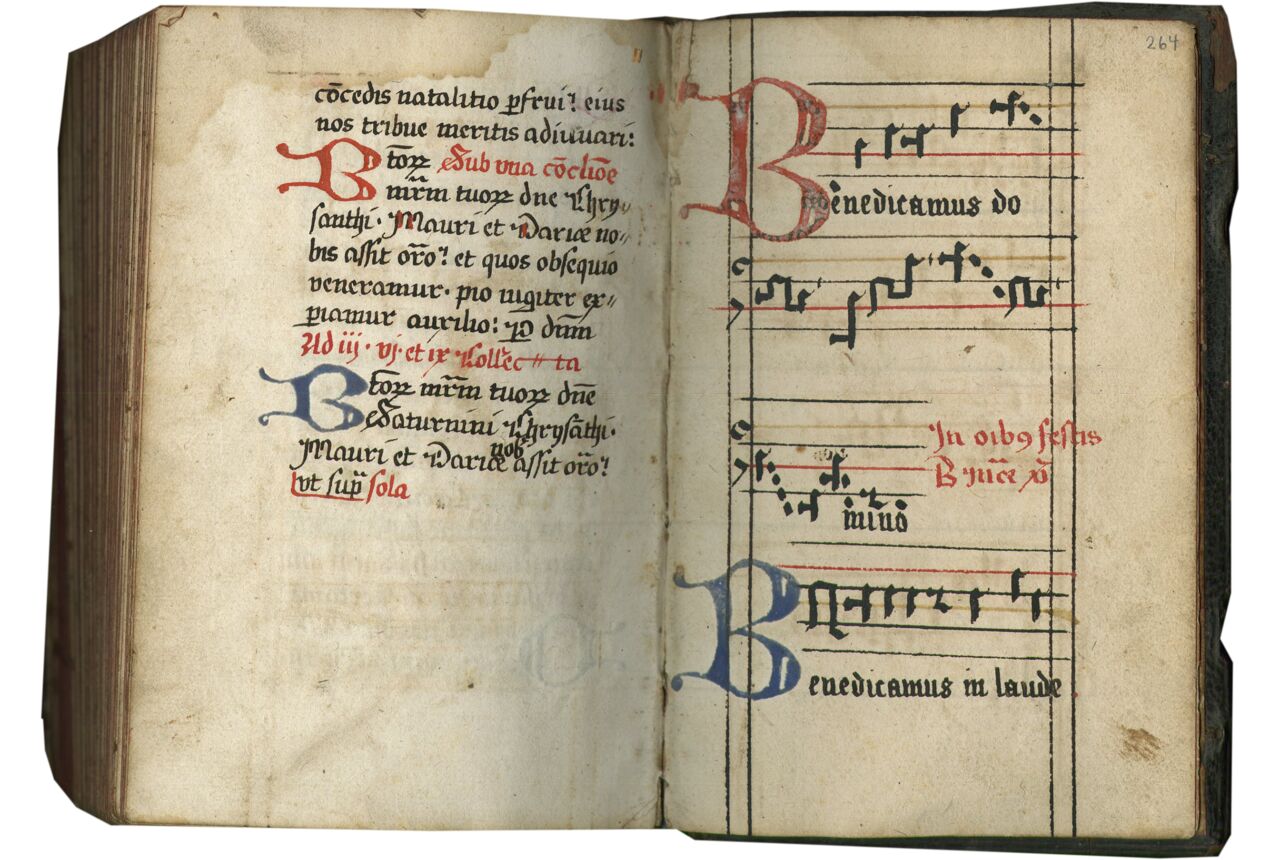 cōcedis natalitio ꝑfrui? eius
nos tribue meritis adiuuari:
Btoꝝ Sub vna cōclīoe
mr̄m tuoꝝ dn̄e Chry„
santhi· Mauri et Dariæ no„
bis assit or̄o? et quos obsequio
veneramur· pio iugiter ex„
piamur auxilio: P dn̄m
Ad iij· vj· et ix Collec„ta
Btoꝝ mr̄m tuoꝝ dn̄e
Saturnini Chrysāthi·
Mauri et Dariæ nob assit or̄o?
vt sup̄ sola
264
Benedicamus do
In oībꝯ festis
B
mino
Benedicamus in laude